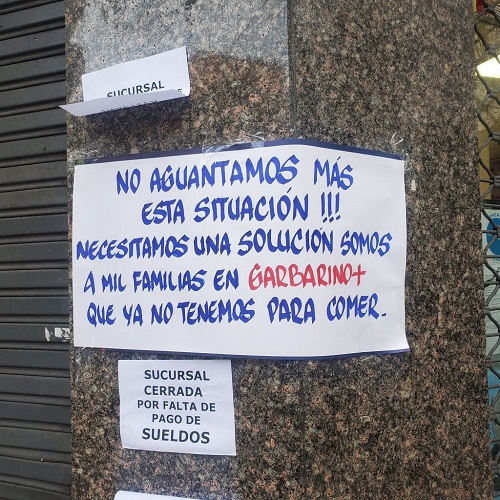 SUCURSAL
NO AGUANTAMOS MÁS
ESTA SITUACIÓN !!!
NECESITAMOS UNA SOLUCIÓN SOMOS
4 MIL FAMILIAS EN GARBARINO+
QUE YA NO TENEMOS PARA COMER.
SUCURSAL
CERRADA
POR FALTA DE
PAGO DE
SUELDOS